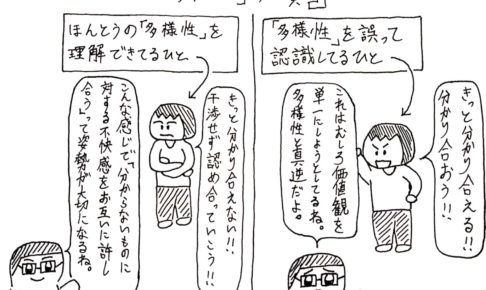 「多様性」を誤って
認識してるひと
きっと分かり合える!!
分かり合おう!!
これはむしろ価値観を
単一にしようとしてるね。
多様性と真逆だよ。
ほんとうの「多様性」を
理解できてるひと
きっと分かり合えない!!
干渉せず認め合っていこう!!
こんな感じで、分からないものに
対する不快感をお互いに許し
合うって姿勢が大切になるね。